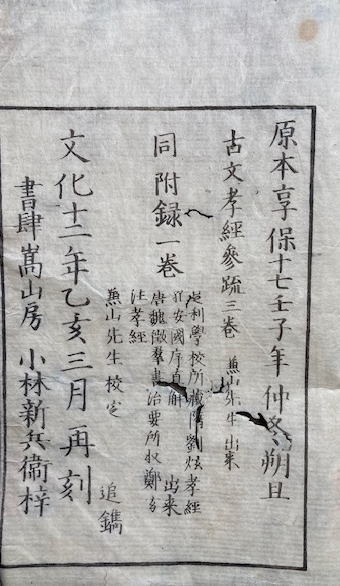 原本享保十七壬子年仲冬朔旦
古文孝經參疏三卷
蕉山先生出来
同附録一卷
足利學校所藏隋劉炫孝經
安國序直解
出来
唐魏徵羣書治要所收鄭
注孝經
蕉山先生校定
追鐫
文化十二年乙亥三月再刻
書肆嵩山房 小林新兵衞梓